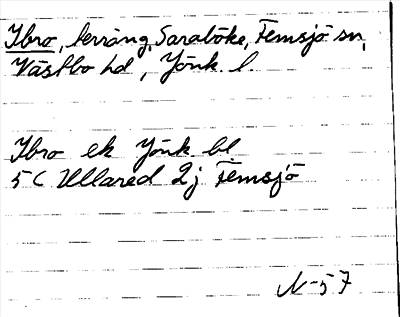 Ibro, terräng, Saraböke, Femsjö sn,
Västbo hd, Jönk. l.
Ibro ek Jönk. bl
5C Ullared 2j Femsjö
N-57